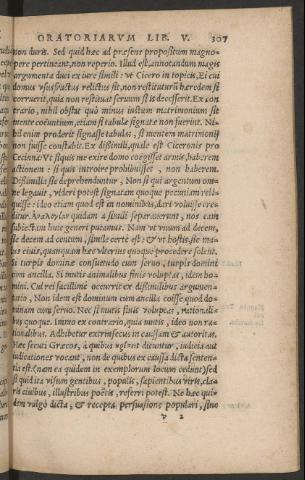 ORATORIARVM LIB. V. 307
non duris. Sed quid hæc ad præsens propositum magno-
pere pertineant, non reperio. Illud est adnotandum magis
argumenta duci ex iure simili: vt Cicero in topicis, Ei cui
domus vsusfructus relictus sit, non restiturum hæredem si
corruerit, quia non restituat seruum si is decesserit. Ex con
trario, nihil obstat quò minus iustum matrimonium sit
mente coëuntium, etiam si tabulæ signatæ non fuerint. Ni-
hil enim proderit signasse tabulas, si mentem matrimonij
non fuisse constabit. Ex dissimili, quale est Ciceronis pro
Cecinna: Vt si quis me exire domo coegisset armis, haberem
actionem: si quis introire prohibuisset, non haberem.
Dissimilia sic deprehenduntur, Non si qui argentum omne
legauit, videri potest signatam quoque pecuniam reli-
quisse: ideo etiam quod est in nominibus, dari voluisse cre-
ditur. quidam à simili separauerunt, nos eam
subiectam huic generi putamus. Nam vt vnum ad decem,
sic decem ad centum, simile certè est: & vt hostis, sic ma-
lus ciuis, quanquam hæc vlterius quoque procedere solent.
Si turpis dominæ consuetudo cum seruo, turpis domini
cum ancilla. Si mutis animalibus finis voluptas, idem ho-
mini. Cui rei facillimè occurrit ex dissimilibus argumen-
tatio, Non idem est dominum cum ancilla coisse, quod do-
minam cum seruo. Nec si mutis finis voluptas, rationali-
bus quoque. Immo ex contrario, quia mutis, ideo non ra-
tionalibus. Adhibetur extrinsecus in caussam & autoritas.
Hæc secuti Græcos, à quibus dicuntur, iudicia aut
iudicationes vocant, non de quibus ex caussa dicta senten-
tia est (nam ea quidem in exemplorum locum cedunt) sed
si quid ita visum gentibus, populis, sapientibus viris, cla-
ris ciuibus, illustribus poëtis, referri potest. Ne hæc qui-
dem vulgò dicta, & recepta persuasione populari, sine
v 2